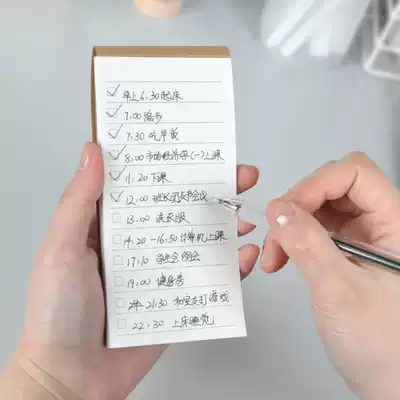 早上6:30起床
7:00跑步
7:30吃早餐
8:00市场经济学(一)上课
11:20下课
12:00班长团支书会议
13:00
14:20-16:50计算机上课
17:10 例会
19:00 健身房
21:30 和室友打游戏
22:30 上床睡觉